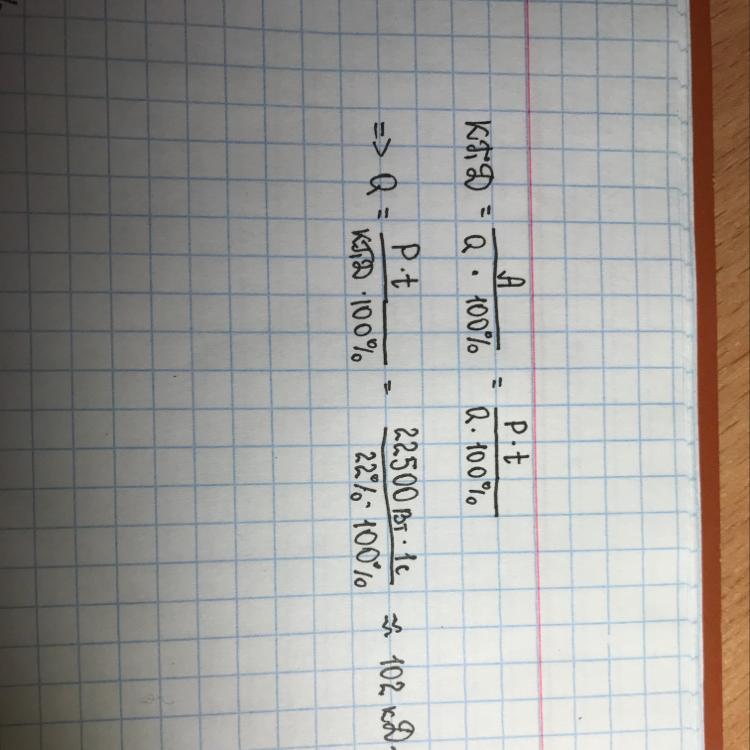 КПД = A / Q · 100% = P·t / Q · 100%
=> Q = P·t / КПД · 100% = 22500 Вт · 1с / 22% · 100% ≈ 102 кД